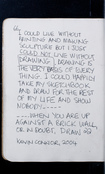 "I COULD LIVE WITHOUT
PAINTING AND MAKING
SCULPTURE BUT I JUST
COULD NOT LIVE WITHOUT
DRAWING. DRAWING IS
THE VERY BASIS OF EVERY
THING. I COULD HAPPILY
TAKE MY SKETCHBOOK
AND DRAW FOR THE REST
OF MY LIFE AND SHOW
NOBODY.----
----WHEN YOU ARE UP
AGAINST A BRICK WALL
OR IN DOUBT, DRAW."
CONNOR, 2004